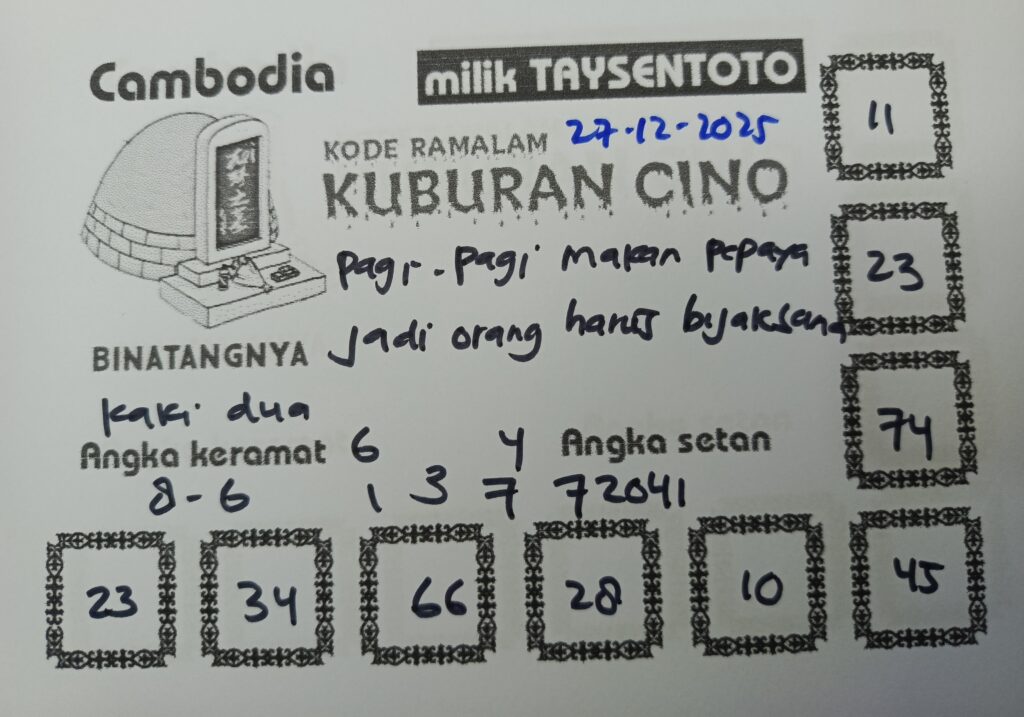 Cambodia
milik TAYSENTOTO
KODE RAMALAM 27-12-2025
KUBURAN CINO
pagi-pagi makan pepaya
jadi orang harus bijaksana
BINATANGNYA
kaki dua
Angka keramat
8-6
6 4
1 3 7
Angka setan
72041
11
23
74
23 34 66 28 10 45